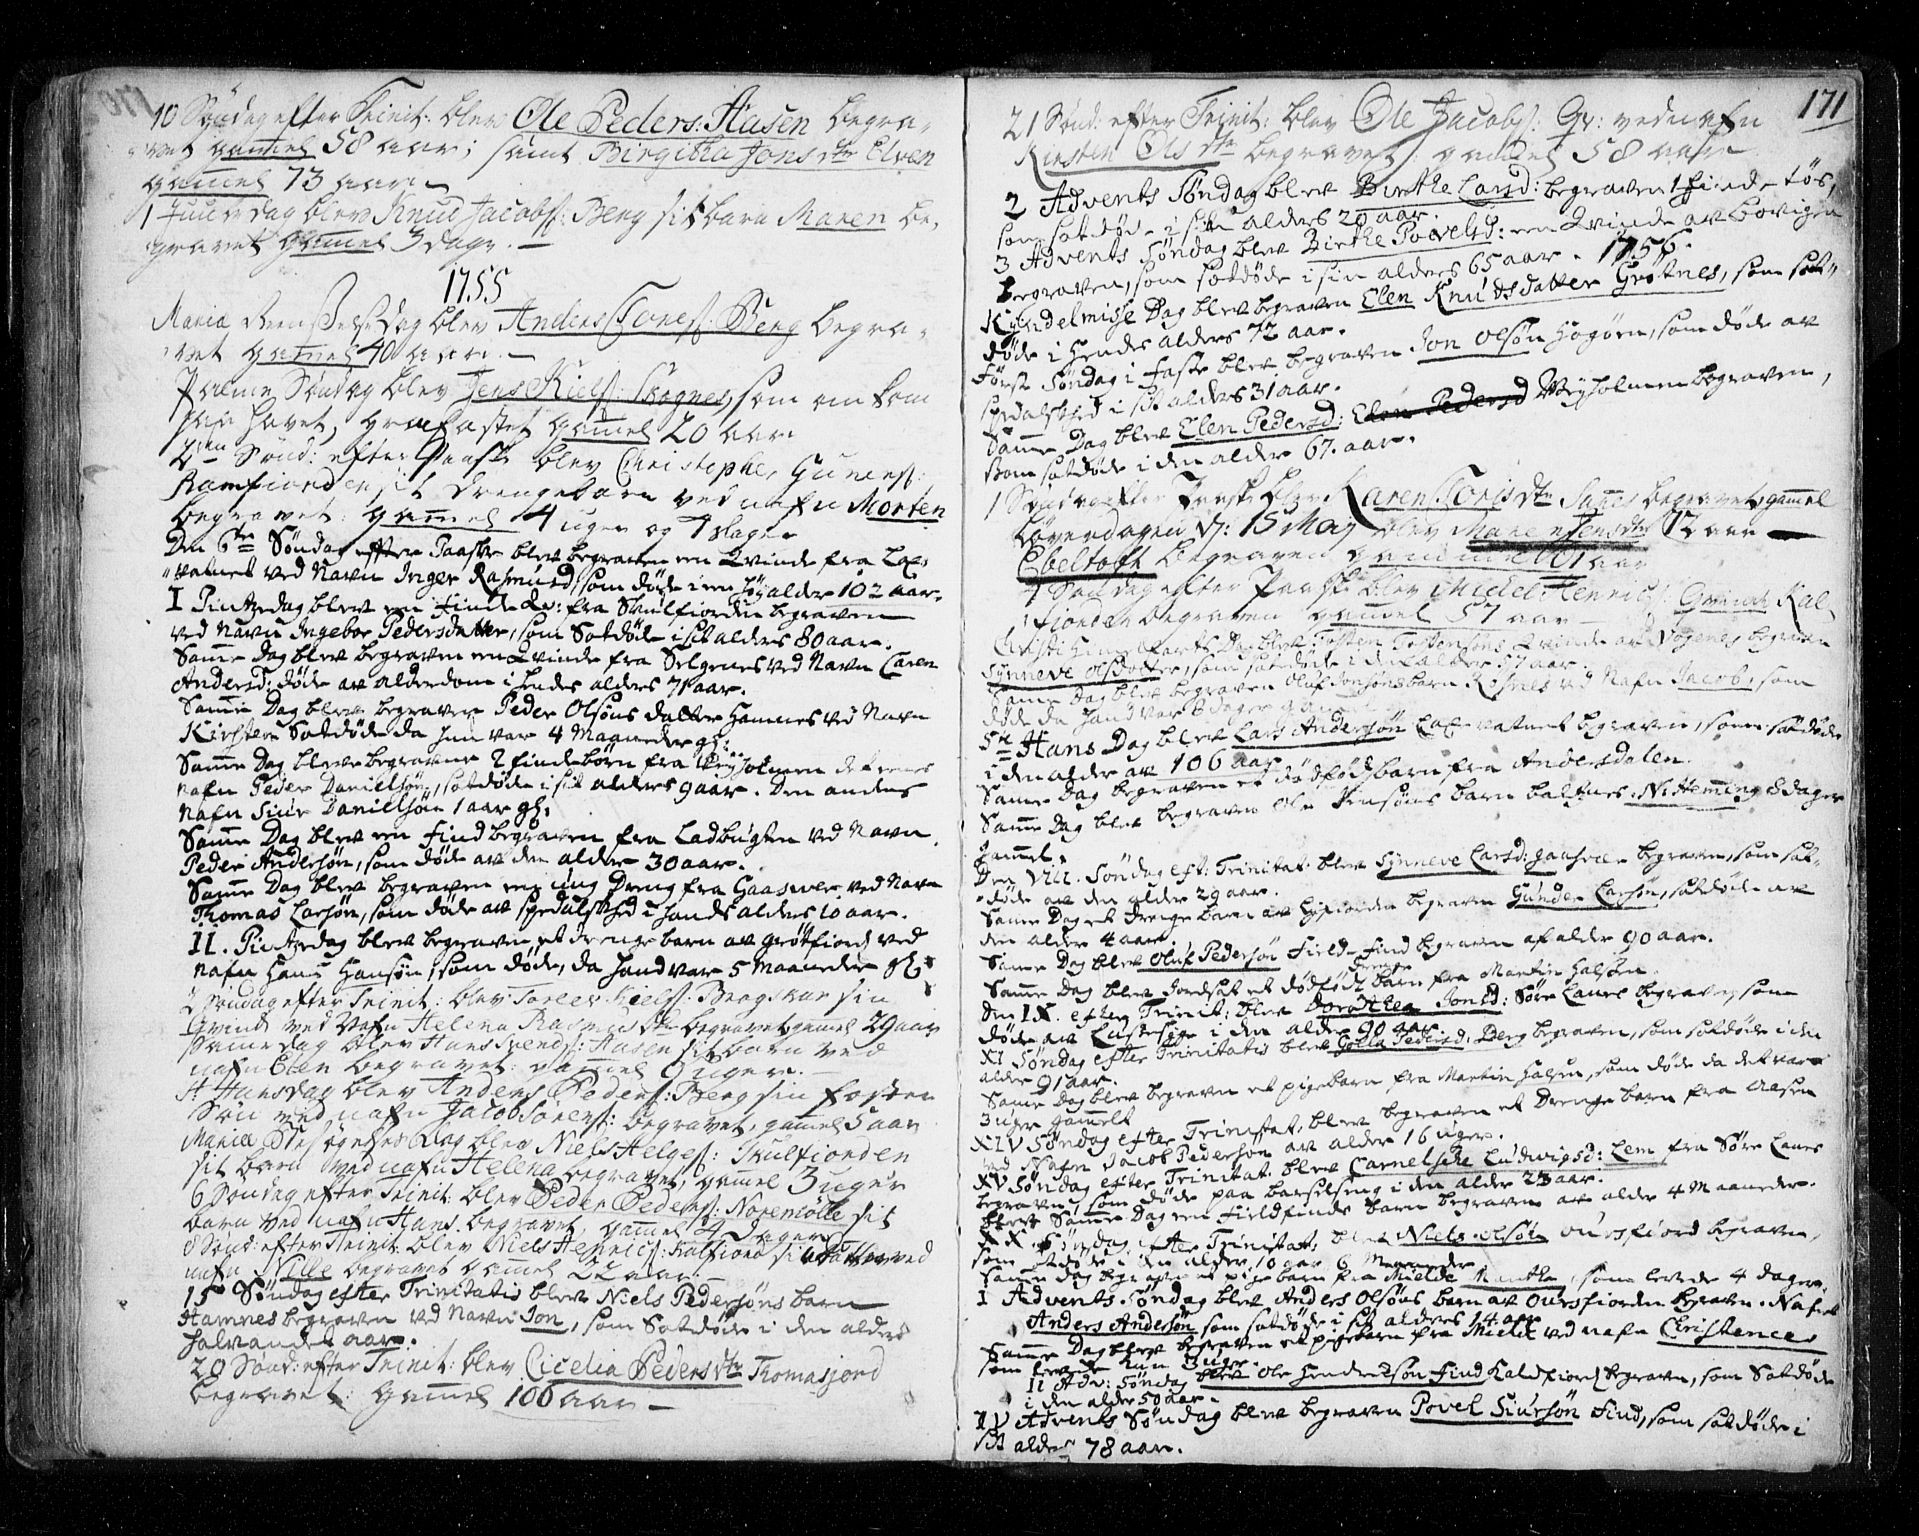 10 Søndag efter Trinit: blev Ole Peders: Hasen begra-
vet gamel 58 aar; samt Birgitha Jons dtr Elven
gamel 73 aar
1 Juuledag blev Knud Jacobs: Berg sit barn Maren be-
gravet gamel 3 dage.
1755
Mariæ Renselses Dag blev Anders Tores: Berg begra-
vet gamel 40 aar.
Palme Søndag blev Jens Kiels: Skognes, som om kom
paa havet, gravfastet gamel 20 aar
2den Sønd: efter Paaske blev Christopher Guners:
Ramfiorden sit drengebarn ved nafn Morten
begravet: gamel 4 uger og 1 dag
Den 6te Søndag effter Paaske blev begraven en Qvinde fra Lax-
vatnet ved Navn Inger Rasmusd, som døde i en høy alder 102 aar.
I Pintzedag blev en finde fra Skulfiorden begraven
ved Navn Ingebor Pedersdatter, som Sotdøde i sit alders 80 aar.
Samme Dag blev begraven en Qvinde fra Selgenes ved Navn Caren
Andersd: døde av alderdom i hendes alders 71 aar.
Samme Dag blev begraven Peder Olsøns datter Hamnes ved Navn
Kirsten Sotdøde da hun var 4 Maaneder gl:
Samme Dag bleve begravne 2 findebørn fra Vejholmen det eenes
Nafn Peder Danielsøn, sotdøde i sit alders 9 aar. Den andens
Nafn Siur Danielsøn 1 aar gl:
Samme Dag blev en find begraven fra Ladbugten ved Navn
Peder Andersøn, som døde av den alder 30 aar.
Samme Dag blev begraven en ung Dreng fra Gaaswer ved Navn
Thomas Larsøn, som døde av spedalskhed i hands alders 10 aar.
II. Pintzedag blev begraven et drenge barn av Grøtfiord ved
Nafn Hans Hansøn, som døde, da hand var 5 Maaneder gl:
2 Søndag efter Trinit: blev Torler Kiels: Berg skar sin
Qvinde ved Nafn Helena Rasmus dtr begravet gamel 29 aar
Samme dag blev Hans Svends: Hasen sit barn ved
nafn Elen begravet: gamel 6 uger.
St Hansdag blev Anders Peders: Berg sin foster
Søn ved nafn Jacob Sørens: begravet, gamel 5 aar
Mariæ Besøgelses Dag blev Niels Helges: Skulfiorden
sit barn ved nafn Helena begravet, gamel 3 uger
6 Søndag efter Trinit: blev Peder Peders: Noremolle sit
barn ved nafn Hans begravet, gamel 4 Dager
8 Sønd: efter Trinit: blev Niels Henrics: Kalfiord sin datter ved
nafn Nille begravet gamel 22 aar
15 Søndag efter Trinitatis blev Niels Pedersøns barn
Hamnes begraven ved Navn Jon, som Sotdøde i den alder
halvandet aar.
20 Sønd: efter Trinit: blev Cicelia Peders dtr Thomasjord
begravet: gamel 106 aar
171
21 Sønd: efter Trinit: blev Ole Jacobs: Qv: ved nafn
Kiersten Ols dtr begravet: gamel 58 aar
2 Advents Søndag blev Birthe Larsd: begraven 1 finde tøs,
som sotdøde i sit alders 20 aar.
3 Advents Søndag blev Birthe Povelsd: en Qvinde av bovigen
begraven, som sotdøde i sin alders 65 aar. 1756.
Kyndelmisse Dag blev begraven Elen Knudsdatter Grøtnes, som sot-
døde i hendes alders 72 aar.
Første Søndag i Faste blev begraven Jon Olsøn Høgøen, som døde av
spedalskhed i sit alders 31 aar.
Samme Dag blev Elen Pedersd: Elen Pedersd Vejholmen begraven,
som sotdøde i den alder 67. aar.
1 Søndag efter Paaske blev Karen Toris dtr begravet gamel
Løverdagen d: 15 May blev Maren dtr 72 aar
Ebeltoft begraven gammel aar
4 Søndag efter Paaske blev Michel Henrics: Kal-
fiorden begraven gamel 57 aar
Christi Himmelfarts Dag blev Tosten Tostensøns Qvinde av Vogenes begraven
Synneve Olsdotter, som sotdøde i den alder 57 aar.
Samme Dag blev begraven Oluf Jonsøns barn ved Nafn Jacob, som
døde da hand var 8 dager gammel
St Hans Dag blev Lars Andersøn Lax-vatnet begraven, som sotdøde
i den alder av 106 aar
Samme Dag begraven et dødfødt barn fra Andersdalen.
Samme Dag blev begraven Ole Jensøns barn baltnes. N: Hemming 8 dager
gammel.
Den VIII. Søndag eft: Trinitat: blev Synneve Larsd: Gaaswer begraven, som sot-
døde av den alder 29 aar.
Samme Dag et drenge barn av begraven Gunder Larsøn, sotdøde av
den alder 4 aar
Samme Dag blev Oluf Pedersøn Field-find begraven af alder 90 aar.
Samme Dag blev Jordsat et dødfødt drenge barn fra Martin Halsøen.
Den IX. efter Trinit: blev Dorothea Jonsd: Søre Lanes begraven som
døde av i den alder 90 aar
XI Søndag efter Trinitatis blev Golla Pedersd: Berg begraven, som sotdøde i den
alder 91 aar.
Samme Dag blev begraven et pigebarn fra Martin Halsen, som døde da det var
3 uger gammelt
XIV Søndag efter Trinitat: blev begraven et Drenge barn fra Alsen
ved Nafn Jacob Pedersøn av alder 16 uger.
XV Søndag efter Trinitat: blev Carnelsche Ludwigsd: Lem fra Søre Lanes
begraven, som døde paa barselseng i den alder 23 aar.
blev Samme Dag en Fieldfinds barn begraven av alder 4 Maaneder.
XX. Søndag efter Trinitat: blev Niels Olsøn Oursfiord begraven,
som sotdøde i den alder 10 aar 6 Maaneder
Samme Dag begraven et pigebarn fra Mielde Marthe, som levede 4 dager
I Advents Søndag blev Anders Olsøns barn av Oursfiorden begraven. Nafnet
Anders Andersøn som sotdøde i sit alders 14 aar
Samme Dag blev begraven et pigebarn fra Mielde ved nafn Christence
som levede kun 3 uger
II Adv: Søndag blev Ole Hendricsøn find Kalfiord begraven, som Sotdøde
i den alder 50 aar
IV Advents Søndag blev begraven Povel Siursøn find, som sotdøde i
sit alder 78 aar.